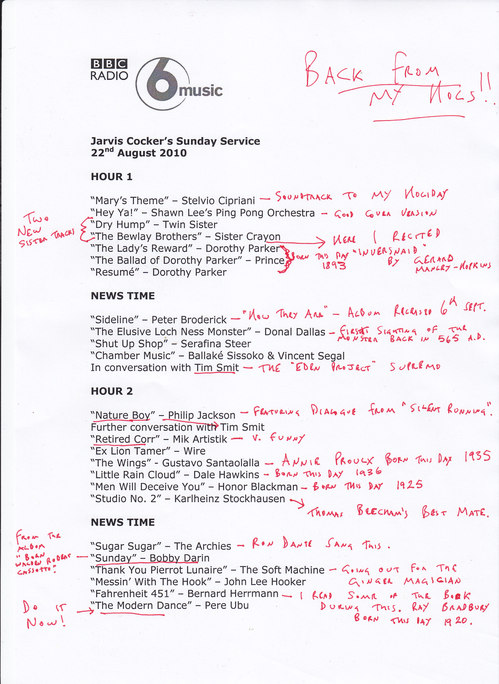 BBC
RADIO
6music
BACK FROM
MY HOLS!!
Jarvis Cocker's Sunday Service
22nd August 2010
HOUR 1
"Mary's Theme" – Stelvio Cipriani — SOUNDTRACK TO MY HOLIDAY
"Hey Ya!" – Shawn Lee's Ping Pong Orchestra — GOOD COVER VERSION
TWO
NEW
SISTER TRACKS
"Dry Hump" – Twin Sister
"The Bewlay Brothers" – Sister Crayon → HERE I RECITED
"INVERSNAID"
BY GERARD
MANLEY-HOPKINS
"The Lady's Reward" – Dorothy Parker
"The Ballad of Dorothy Parker" – Prince
"Resumé" – Dorothy Parker
BORN THIS DAY
1893
NEWS TIME
"Sideline" – Peter Broderick — "HOW THEY ARE" – ALBUM RELEASED 6th SEPT.
"The Elusive Loch Ness Monster" – Donal Dallas — FIRST SIGHTING OF THE
MONSTER BACK IN 565 A.D.
"Shut Up Shop" – Serafina Steer
"Chamber Music" – Ballaké Sissoko & Vincent Segal
In conversation with Tim Smit — THE "EDEN PROJECT" SUPREMO
HOUR 2
"Nature Boy" – Philip Jackson — FEATURING DIALOGUE FROM "SILENT RUNNING".
Further conversation with Tim Smit
"Retired Corr" – Mik Artistik — V. FUNNY
"Ex Lion Tamer" – Wire
"The Wings" - Gustavo Santaolalla — ANNIE PROULX BORN THIS DAY 1935
"Little Rain Cloud" – Dale Hawkins — BORN THIS DAY 1936
"Men Will Deceive You" – Honor Blackman — BORN THIS DAY 1925
"Studio No. 2" – Karlheinz Stockhausen
THOMAS BEECHAM'S BEST MATE.
NEWS TIME
"Sugar Sugar" – The Archies — RON DANTE SANG THIS.
FROM THE
ALBUM
"BORN
WALDEN ROBERT
CASSOTTO"
"Sunday" – Bobby Darin
"Thank You Pierrot Lunaire" – The Soft Machine — GOING OUT FOR THE
GINGER MAGICIAN
"Messin' With The Hook" – John Lee Hooker
"Fahrenheit 451" – Bernard Herrmann — I READ SOME OF THE BOOK
DURING THIS. RAY BRADBURY
BORN THIS DAY 1920.
DO IT
NOW!
"The Modern Dance" – Pere Ubu